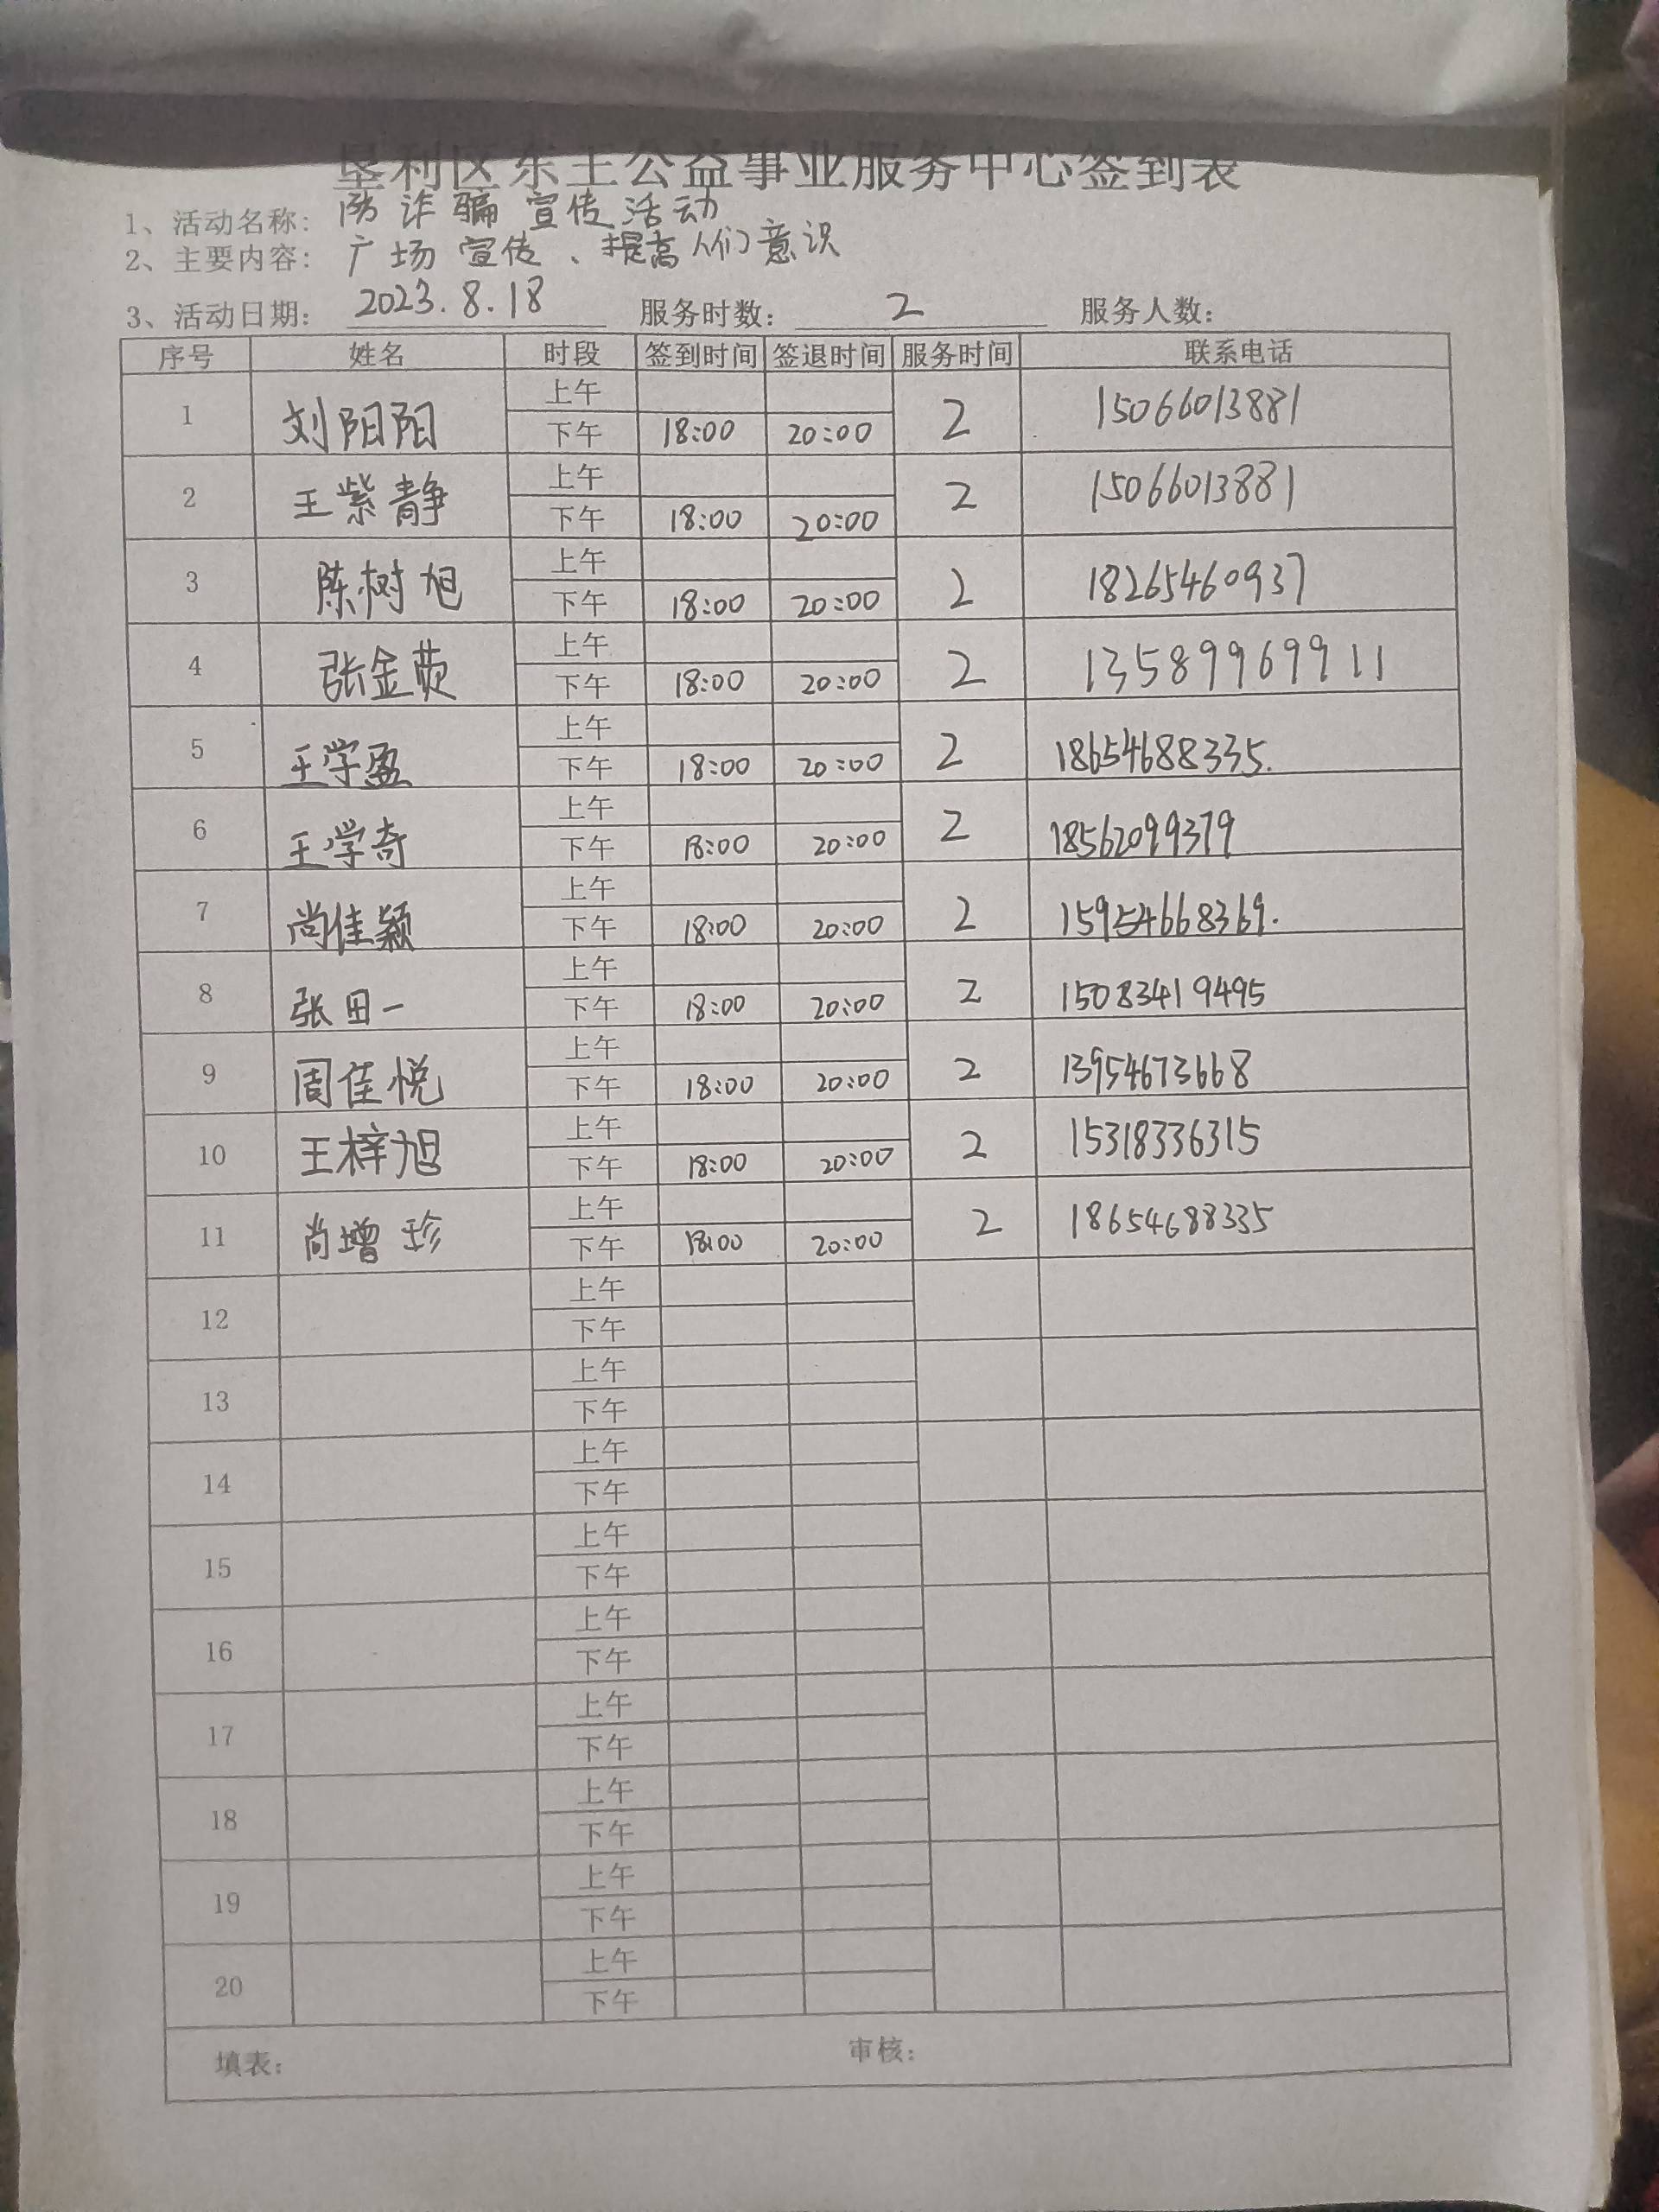 垦利区东王公益事业服务中心签到表
1、活动名称: 防诈骗宣传活动
2、主要内容: 广场宣传、提高人们意识
3、活动日期: 2023.8.18 服务时数: 2 服务人数:
序号 姓名 时段 签到时间 签退时间 服务时间 联系电话
上午
1 刘阳阳 2 15066013881
下午 18:00 20:00
上午
2 王紫静 2 15066013881
下午 18:00 20:00
上午
3 陈树旭 2 18265460937
下午 18:00 20:00
上午
4 张金 2 13589969911
下午 18:00 20:00
上午
5 王学盈 2 18654688335.
下午 18:00 20:00
上午
6 王学奇 2 18562099379
下午 18:00 20:00
上午
7 尚佳颖 2 15954668369.
下午 18:00 20:00
上午
8 张田一 2 15083419495
下午 18:00 20:00
上午
9 周佳悦 2 13954673668
下午 18:00 20:00
上午
10 王梓旭 2 15318336315
下午 18:00 20:00
上午
11 尚增珍 2 18654688335
下午 18:00 20:00
上午
12
下午
上午
13
下午
上午
14
下午
上午
15
下午
上午
16
下午
上午
17
下午
上午
18
下午
上午
19
下午
上午
20
下午
填表: 审核: